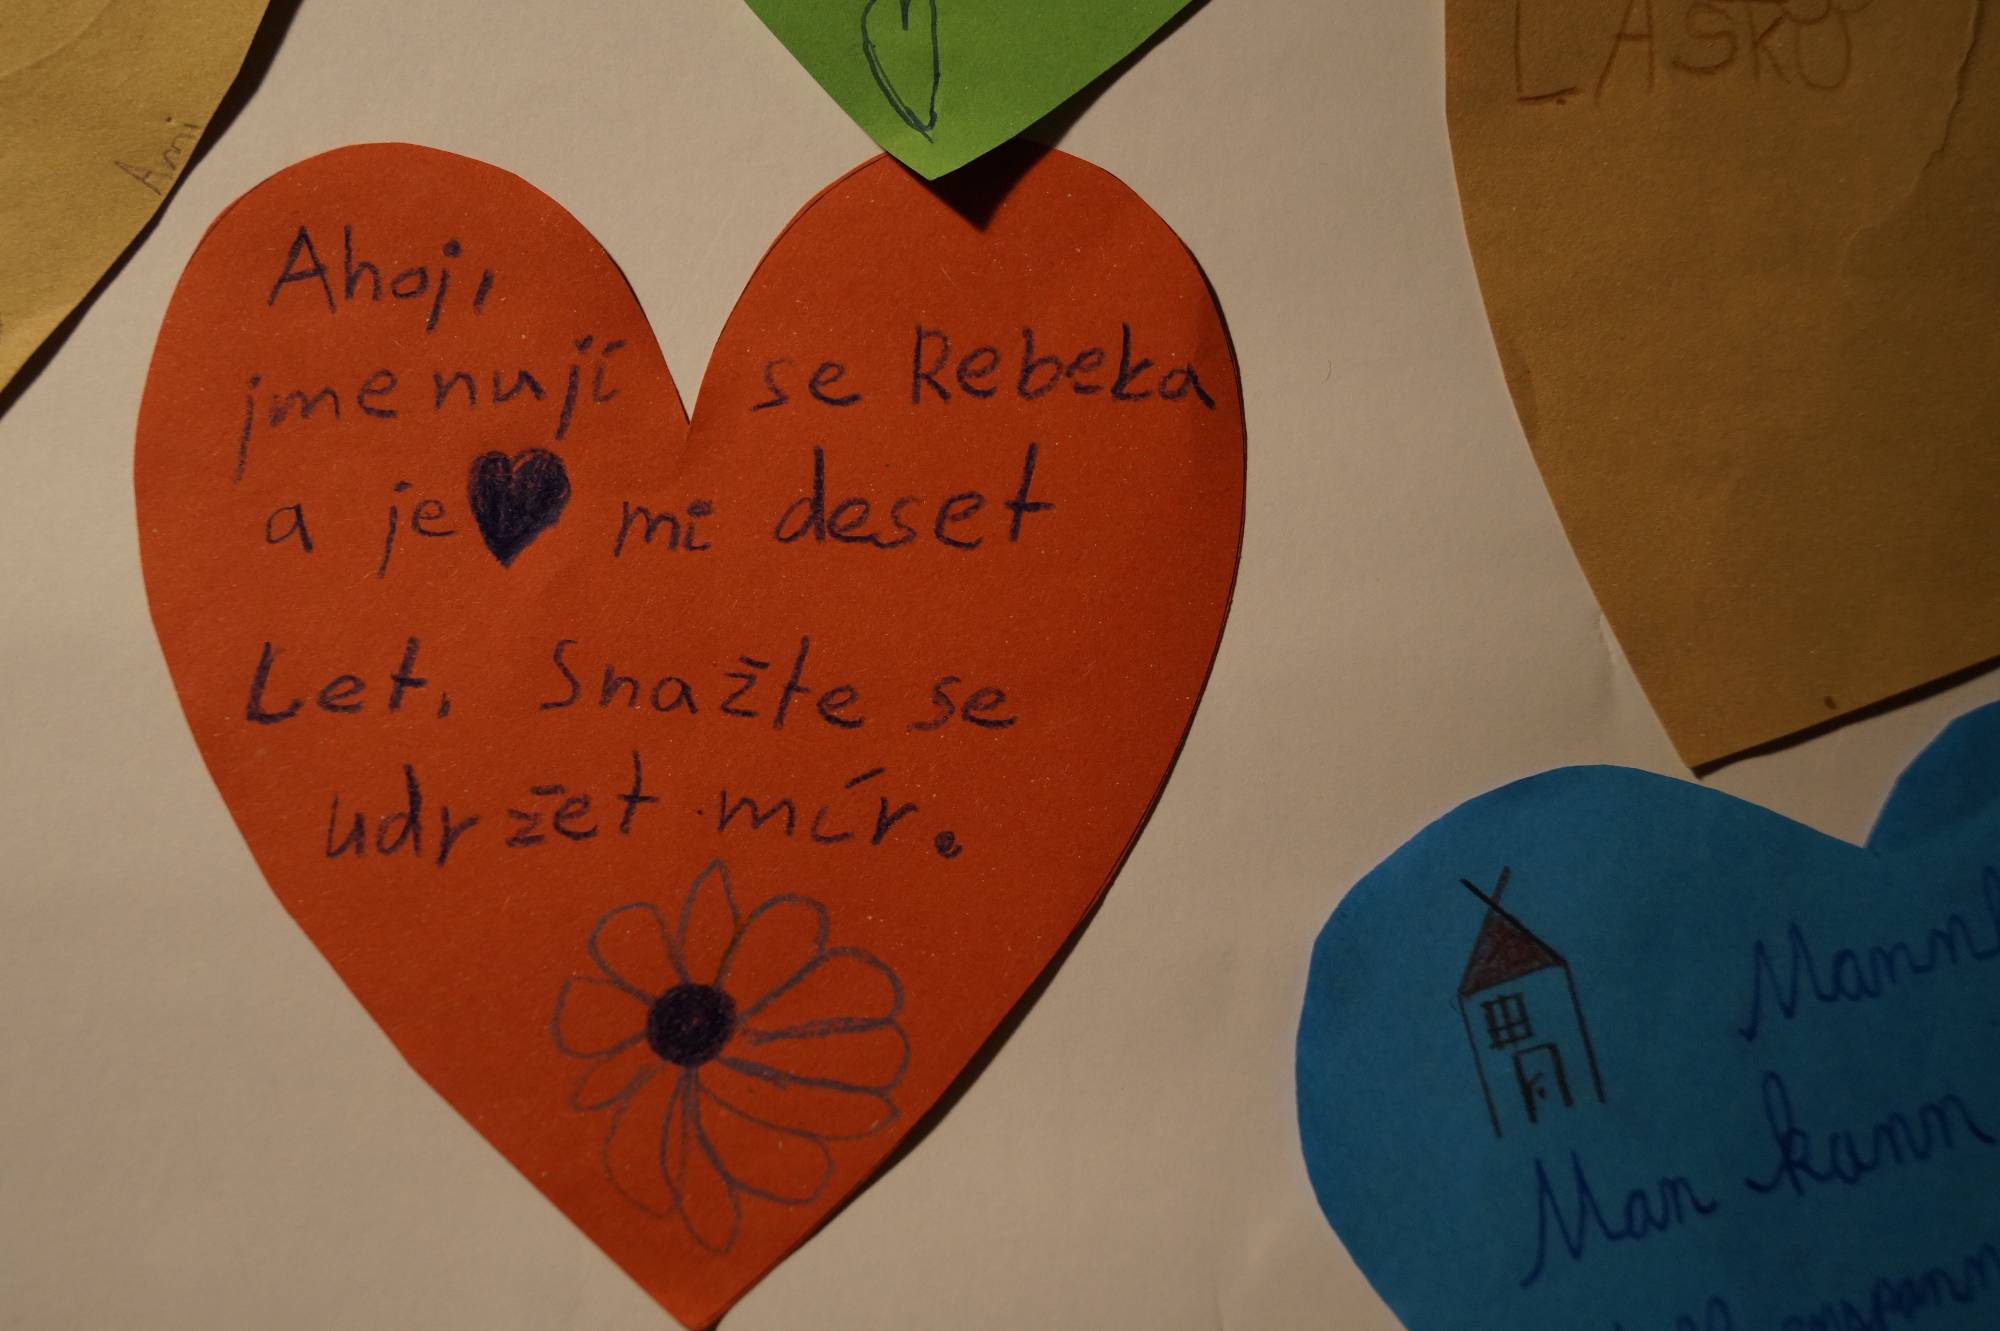 LÁSKU
Ami
Ahoj,
jmenují se Rebeka
a je mi deset
Let, Snažte se
udržet mír.
Man kann